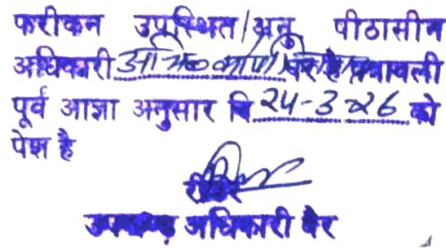 फरीकन उपस्थित/अनु पीठासीन
अधिकारी पत्रावली
पूर्व आज्ञा अनुसार दि 24-3-26 को
पेश है
रीडर
उपखण्ड अधिकारी वैर